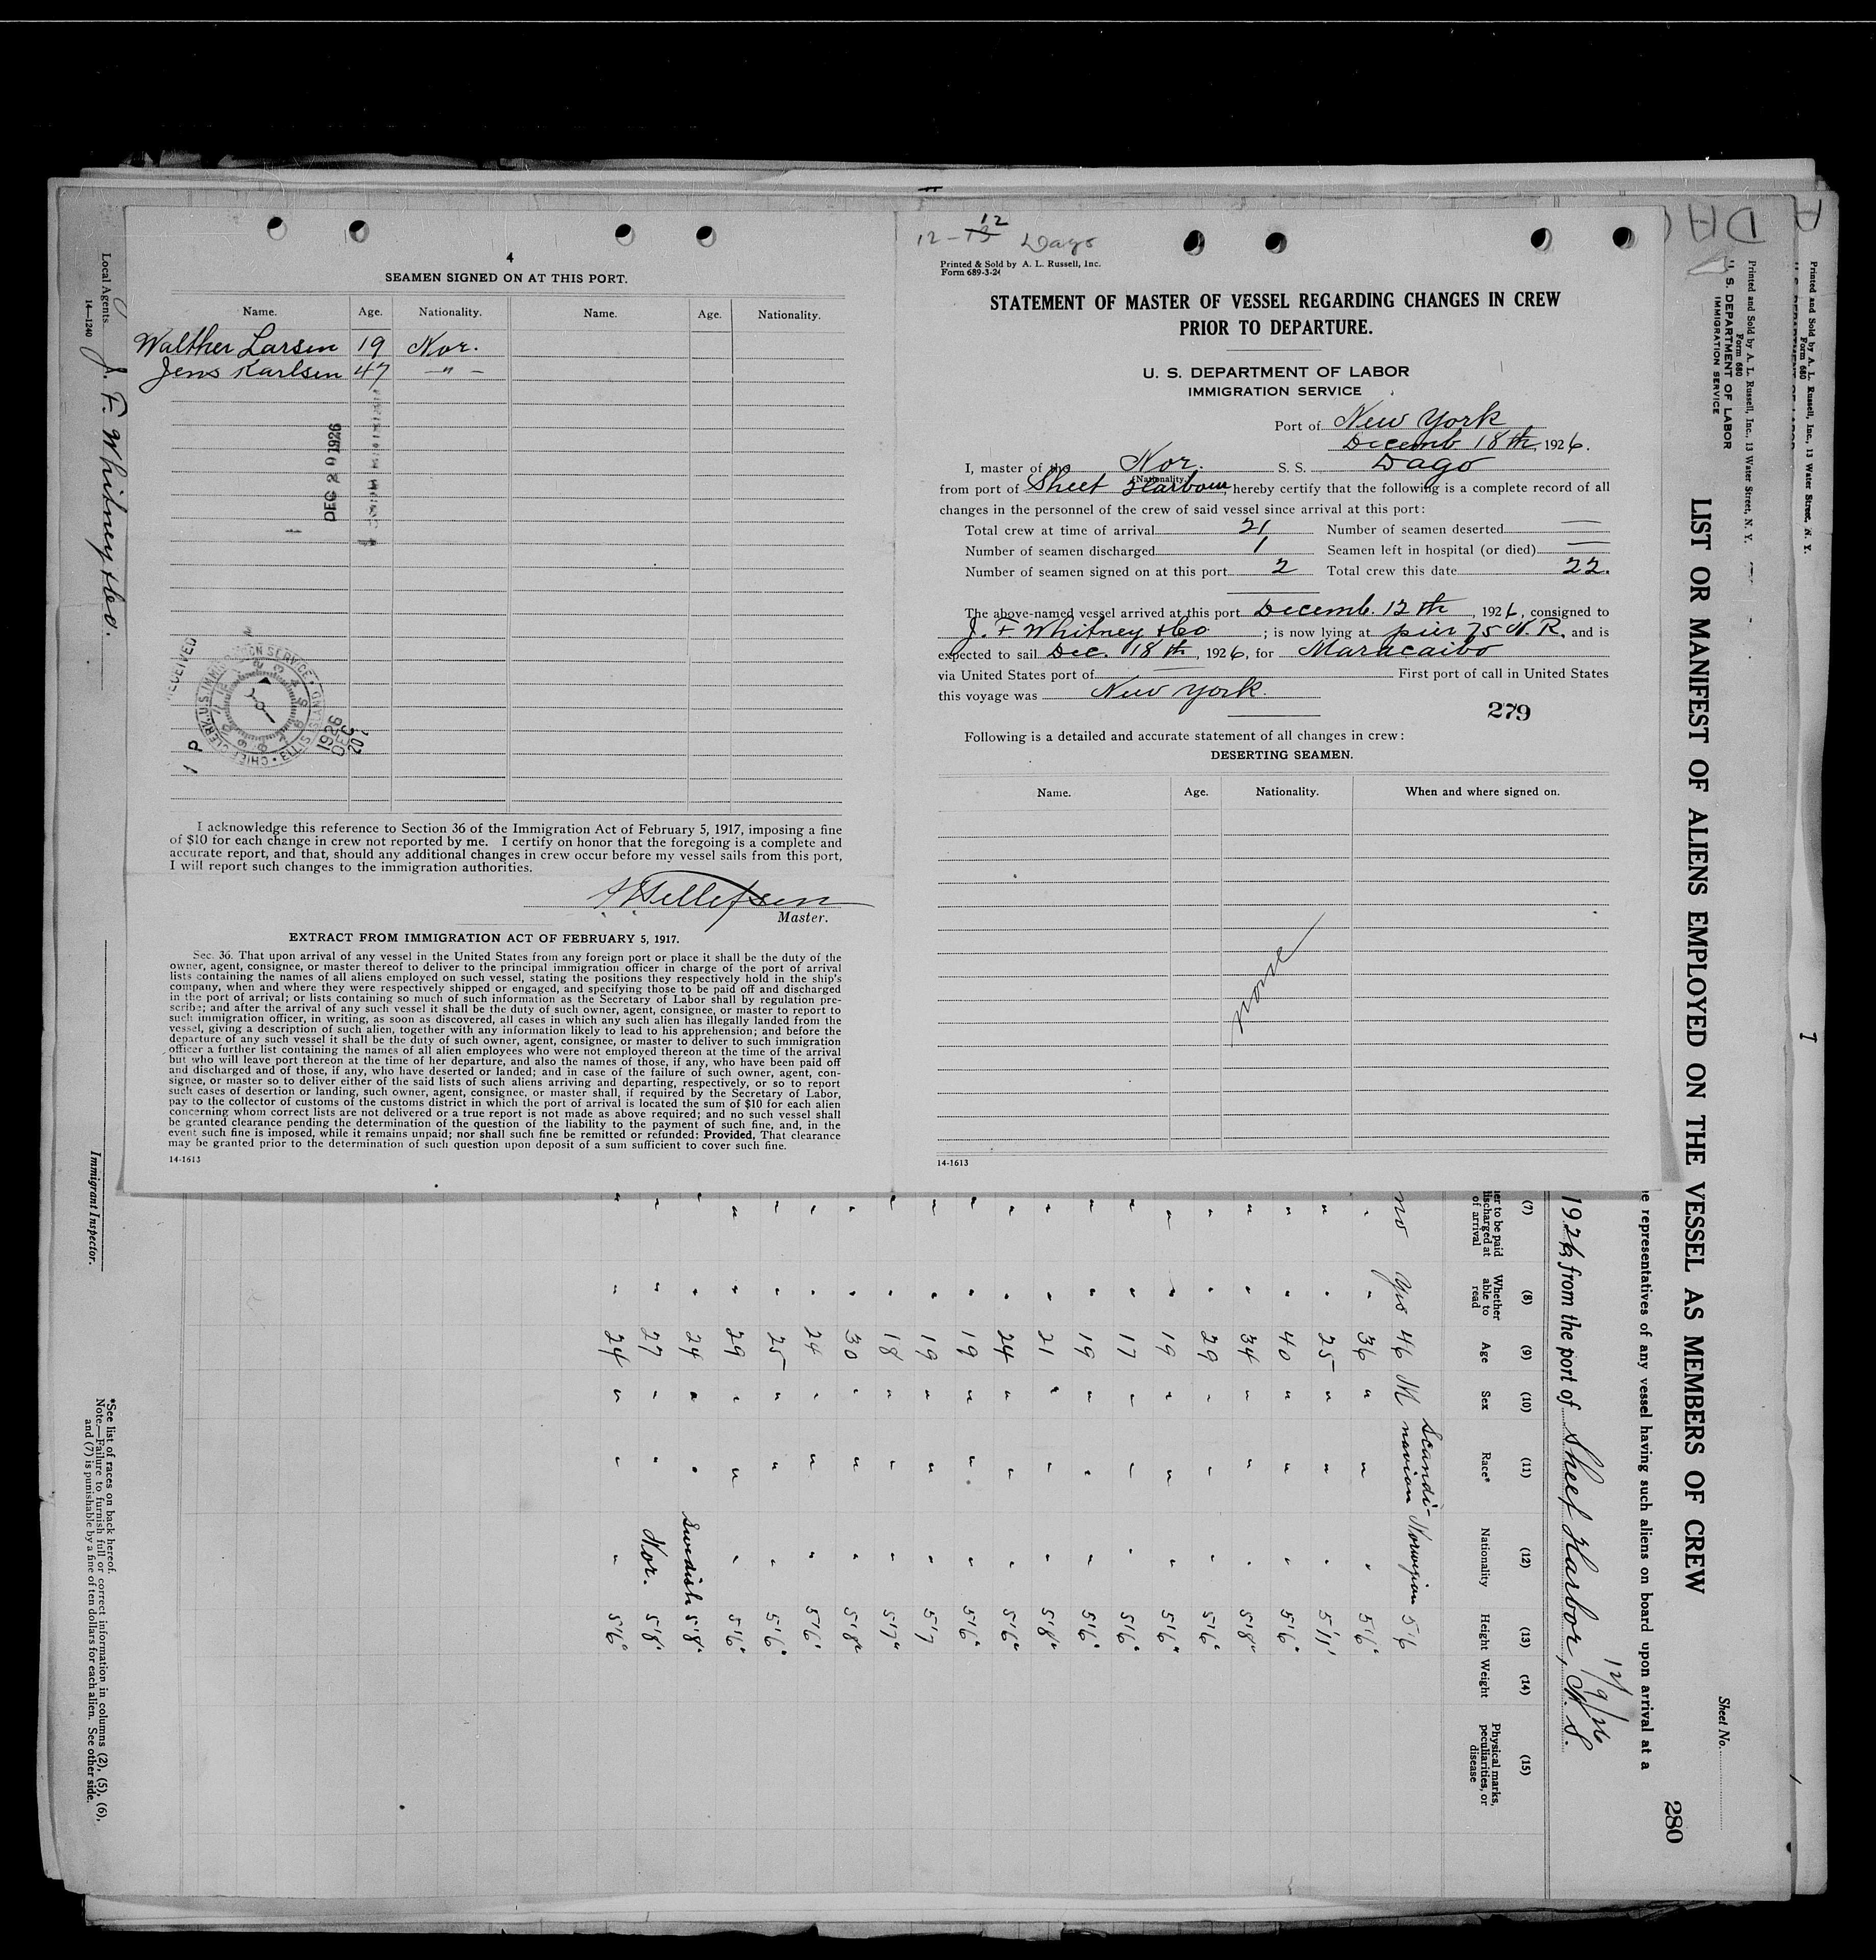 4
SEAMEN SIGNED ON AT THIS PORT.
Name. Age. Nationality. Name. Age. Nationality.
Walther Larsen 19 Nor.
Jens Karlsen 47 -"-
DEC 20 1926
RECEIVED
CHIEF CLERK, U.S. IMMIGRATION SERVICE • ELLIS ISLAND
1926
DEC
20
1 P
I acknowledge this reference to Section 36 of the Immigration Act of February 5, 1917, imposing a fine
of $10 for each change in crew not reported by me. I certify on honor that the foregoing is a complete and
accurate report, and that, should any additional changes in crew occur before my vessel sails from this port,
I will report such changes to the immigration authorities.
Master.
EXTRACT FROM IMMIGRATION ACT OF FEBRUARY 5, 1917.
Sec. 36. That upon arrival of any vessel in the United States from any foreign port or place it shall be the duty of the
owner, agent, consignee, or master thereof to deliver to the principal immigration officer in charge of the port of arrival
lists containing the names of all aliens employed on such vessel, stating the positions they respectively hold in the ship's
company, when and where they were respectively shipped or engaged, and specifying those to be paid off and discharged
in the port of arrival; or lists containing so much of such information as the Secretary of Labor shall by regulation pre-
scribe; and after the arrival of any such vessel it shall be the duty of such owner, agent, consignee, or master to report to
such immigration officer, in writing, as soon as discovered, all cases in which any such alien has illegally landed from the
vessel, giving a description of such alien, together with any information likely to lead to his apprehension; and before the
departure of any such vessel it shall be the duty of such owner, agent, consignee, or master to deliver to such immigration
officer a further list containing the names of all alien employees who were not employed thereon at the time of the arrival
but who will leave port thereon at the time of her departure, and also the names of those, if any, who have been paid off
and discharged and of those, if any, who have deserted or landed; and in case of the failure of such owner, agent, con-
signee, or master so to deliver either of the said lists of such aliens arriving and departing, respectively, or so to report
such cases of desertion or landing, such owner, agent, consignee, or master shall, if required by the Secretary of Labor,
pay to the collector of customs of the customs district in which the port of arrival is located the sum of $10 for each alien
concerning whom correct lists are not delivered or a true report is not made as above required; and no such vessel shall
be granted clearance pending the determination of the question of the liability to the payment of such fine, and, in the
event such fine is imposed, while it remains unpaid; nor shall such fine be remitted or refunded: Provided, That clearance
may be granted prior to the determination of such question upon deposit of a sum sufficient to cover such fine.
14-1613
12-13 12 Dago
Printed & Sold by A. L. Russell, Inc.
Form 689-3-24
STATEMENT OF MASTER OF VESSEL REGARDING CHANGES IN CREW
PRIOR TO DEPARTURE.
U. S. DEPARTMENT OF LABOR
IMMIGRATION SERVICE
Port of New York
Decemb 18th, 1926.
I, master of the Nor. S. S. Dago
(Nationality.)
from port of Sheet Harbour, hereby certify that the following is a complete record of all
changes in the personnel of the crew of said vessel since arrival at this port:
Total crew at time of arrival 21 Number of seamen deserted —
Number of seamen discharged 1 Seamen left in hospital (or died) —
Number of seamen signed on at this port 2 Total crew this date 22.
The above-named vessel arrived at this port Decemb. 12th, 1926, consigned to
J. F Whitney & Co; is now lying at pier 75 N. R, and is
expected to sail Dec. 18th, 1926, for Maracaibo
via United States port of — First port of call in United States
this voyage was New York.
279
Following is a detailed and accurate statement of all changes in crew:
DESERTING SEAMEN.
Name. Age. Nationality. When and where signed on.
none
14-1613
Local Agents
14—1240
J. F. Whitney & Co.
Immigrant Inspector.
*See list of races on back hereof.
Note.—Failure to furnish full or correct information in columns (2), (5), (6),
and (7) is punishable by a fine of ten dollars for each alien. See other side.
Printed and Sold by A. L. Russell, Inc., 13 Water Street, N. Y.
Form 680
Printed and Sold by A. L. Russell, Inc., 13 Water Street, N. Y.
Form 680
U. S. DEPARTMENT OF LABOR
IMMIGRATION SERVICE
Sheet No.
280
LIST OR MANIFEST OF ALIENS EMPLOYED ON THE VESSEL AS MEMBERS OF CREW
e representatives of any vessel having such aliens on board upon arrival at a
12/9/26
1926, from the port of Sheet Harbor, N. S.
(7) (8) (9) (10) (11) (12) (13) (14) (15)
er to be paid discharged at of arrival Whether able to read Age Sex Race* Nationality Height Weight Physical marks, peculiarities, or disease
no Yes 46 M Scandinavian Norwegian 5'6
" " 36 " " " 5'6"
" " 25 " " " 5'11"
" " 40 " " " 5'6"
" " 34 " " " 5'8"
" " 29 " " " 5'6"
" " 19 " " " 5'6"
" " 17 " " " 5'6"
" " 19 " " " 5'6"
" " 21 " " " 5'8"
" " 24 " " " 5'6"
" " 19 " " " 5'6"
" " 19 " " " 5'7
" " 18 " " " 5'7"
" " 30 " " " 5'8"
" " 24 " " " 5'6"
" " 25 " " " 5'6"
" " 29 " " " 5'6"
" " 24 " " Swedish 5'8"
" " 27 " " Nor. 5'8"
" " 24 " " " 5'6"